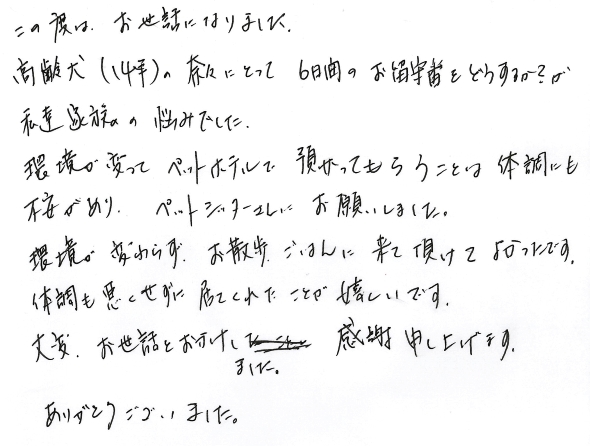 この度は、お世話になりました。
高齢犬(14才)の奈々にとって 6日間のお留守番をどうするか?が
私達家族の悩みでした。
環境が変って ペットホテルで 預かってもらうことは 体調にも
不安があり、ペットシッターさんに お願いしました。
環境が 変わらず、お散歩、ごはんに 来て頂けて よかったです。
体調も悪くせずに 居てくれたことが 嬉しいです。
大変、お世話をお掛けし 感謝申し上げます。
ました。
ありがとうございました。